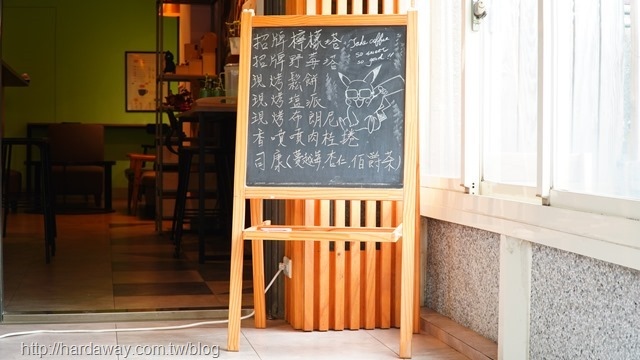 招牌檸檬塔
招牌野莓塔
現烤鬆餅
現烤塩派
現烤布朗尼
香噴噴肉桂捲
司康(蔓越莓.杏仁.伯爵茶)
Jade coffee
so sweet
so good!!
http://hardaway.com.tw/blog